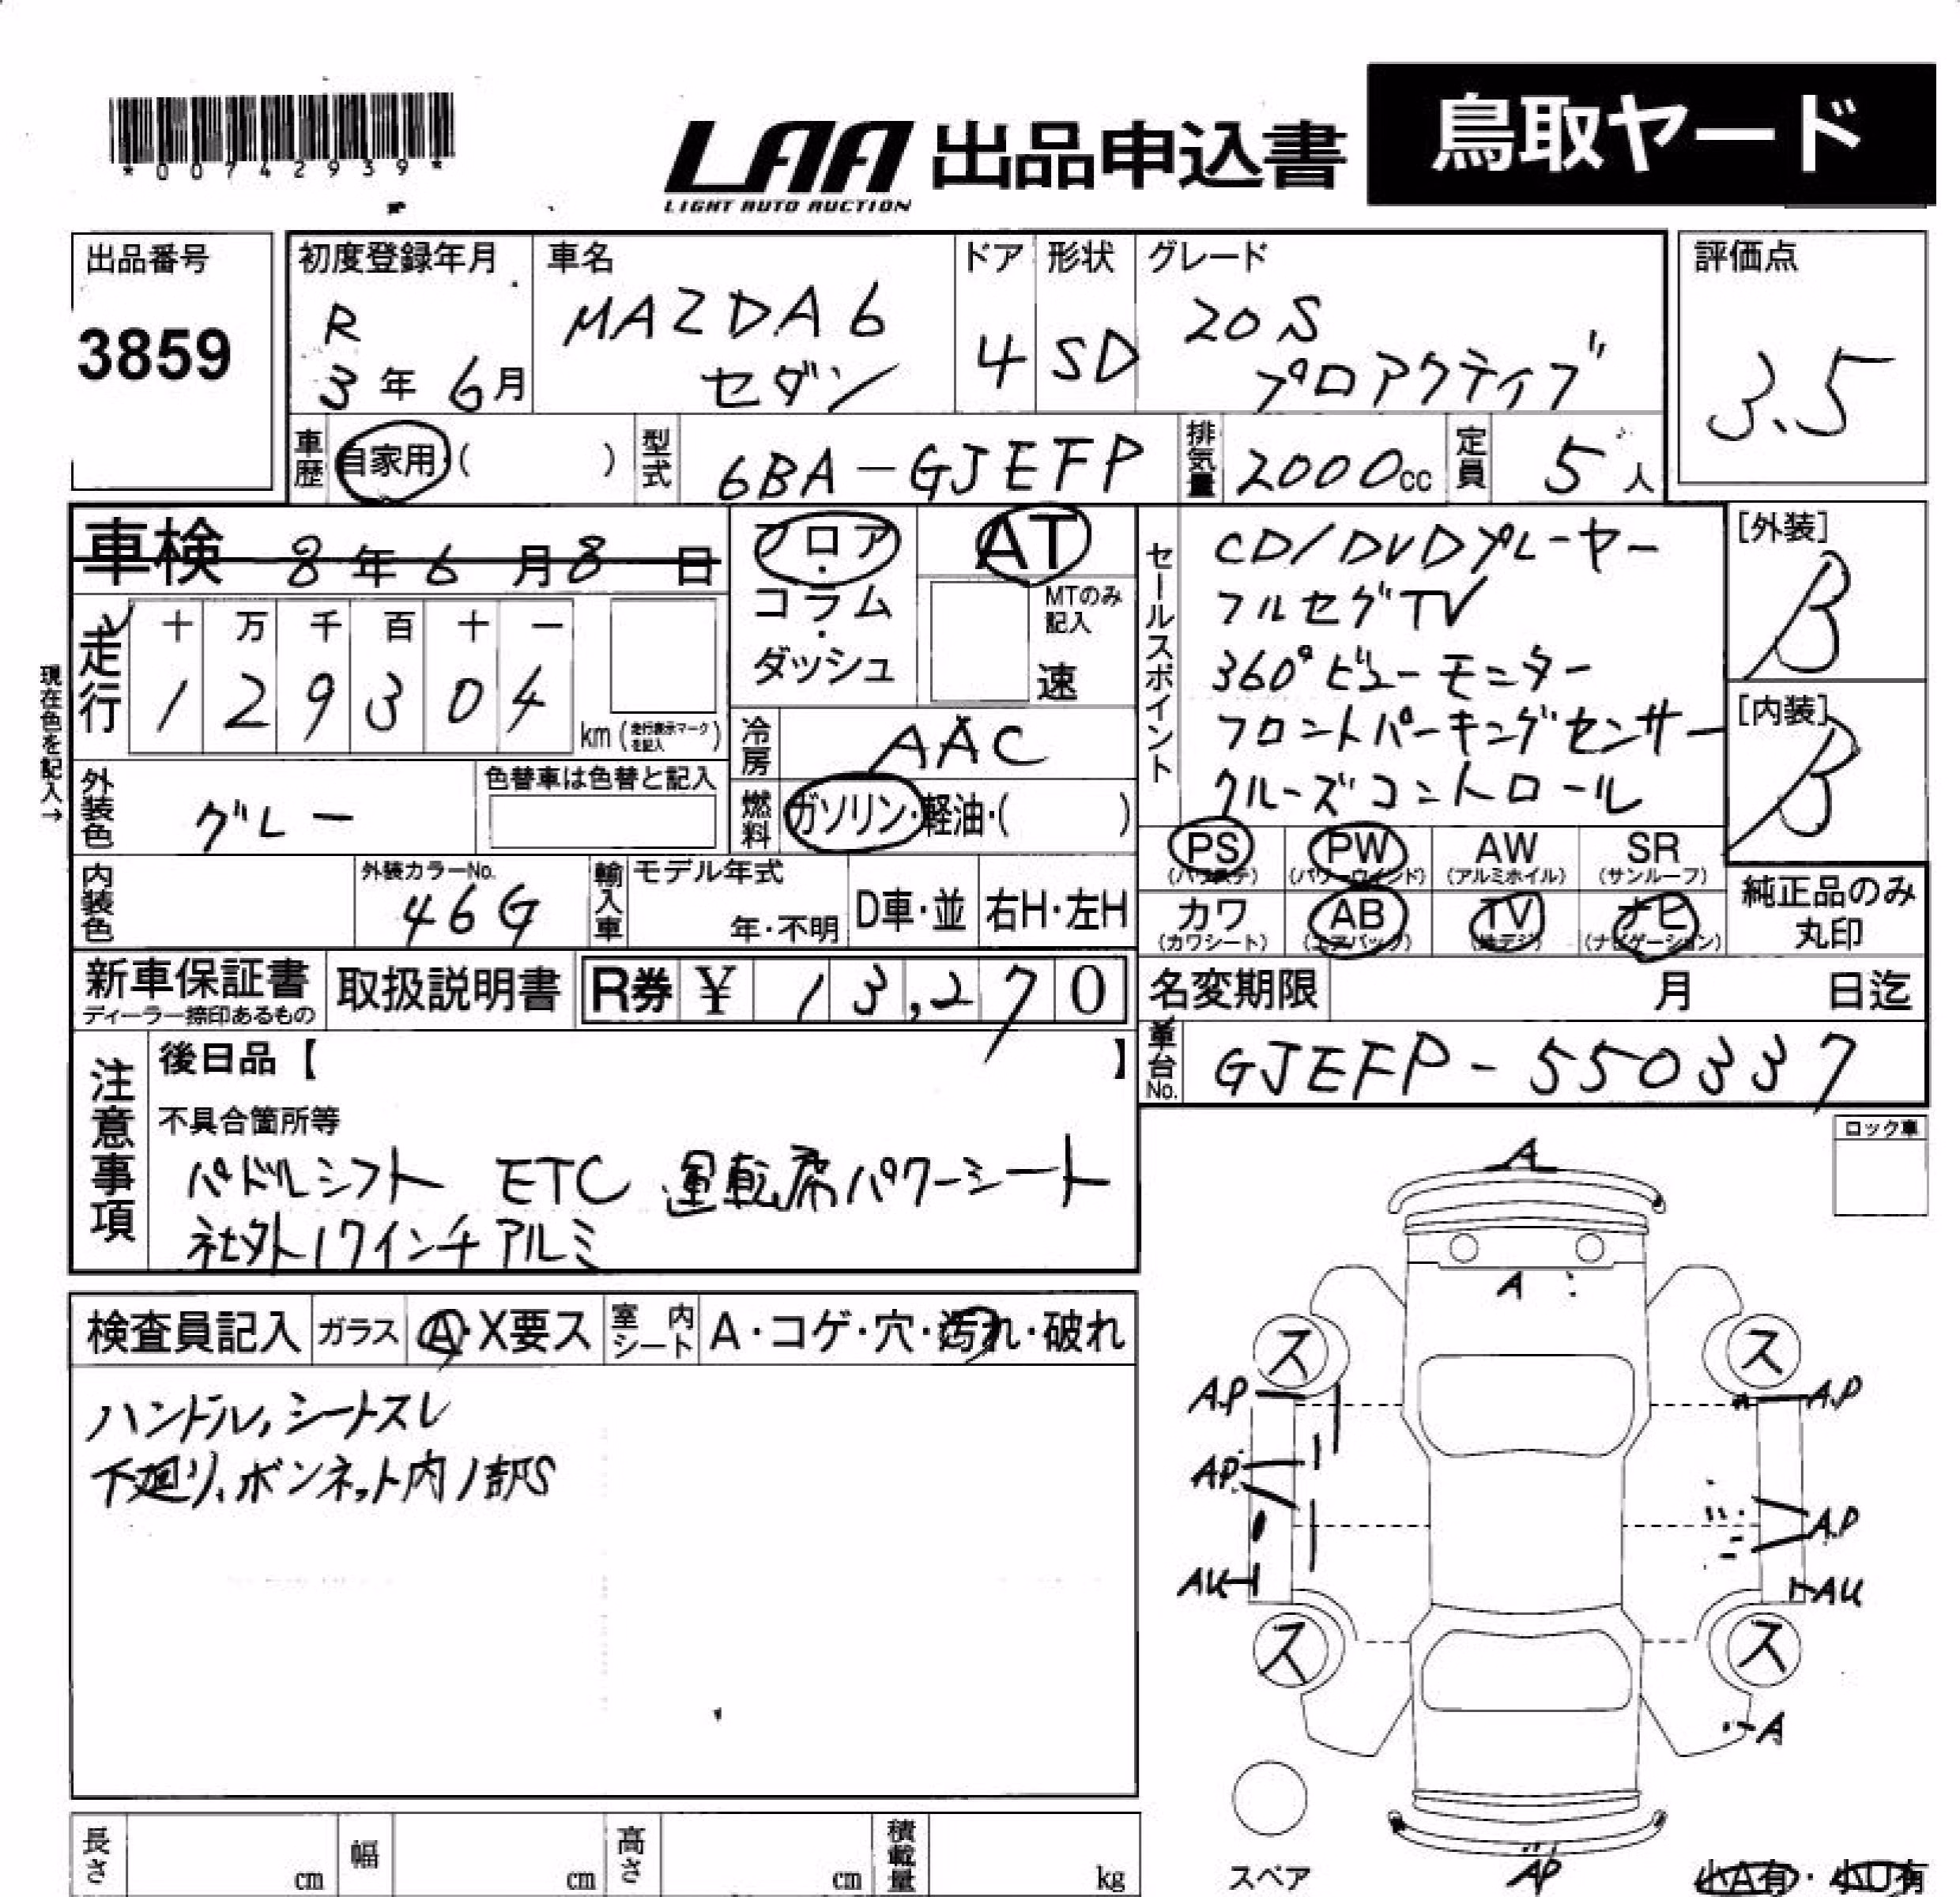 *00742939*
LAA 出品申込書 鳥取ヤード
LIGHT AUTO AUCTION
出品番号
3859
初度登録年月
R
3年 6月
車名
MAZDA6
セダン
ドア
4
形状
SD
グレード
20S
プロアクティブ
評価点
3.5
車歴 自家用・( )
型式 6BA-GJEFP
排気量 2000cc
定員 5人
車検 8年6月8日
走行
十 万 千 百 十 一
1 2 9 3 0 4
km(走行表示マークを記入)
現在色を記入→
フロア・コラム・ダッシュ
AT
MTのみ記入
速
冷房 AAC
燃料 ガソリン・軽油・( )
外装色 グレー
色替車は色替と記入
内装色
外装カラーNo.
46G
輸入車
モデル年式
年・不明
D車・並
右H・左H
セールスポイント
CD/DVDプレーヤー
フルセグTV
360°ビューモニター
フロントパーキングセンサー
クルーズコントロール
[外装]
B
[内装]
B
PS PW AW SR
(パワステ) (パワーウインド) (アルミホイル) (サンルーフ)
カワ AB TV ナビ
(カワシート) (エアバック) (地デジ) (ナビゲーション)
純正品のみ
丸印
新車保証書
ディーラー捺印あるもの
取扱説明書
R券 ¥ 13,270
名変期限 月 日迄
車台No. GJEFP-550337
注意事項
後日品【 】
不具合箇所等
パドルシフト ETC 運転席パワーシート
社外17インチアルミ
ロック車
検査員記入 ガラス A・X要ス 室内シート A・コゲ・穴・汚れ・破れ
ハンドル,シートスレ
下廻り、ボンネット内ノ部S
A
A
ス ス
A.P A.P
AP
A.P
AU AU
ス ス
A
AP
スペア
小A有・小U有
長さ cm 幅 cm 高さ cm 積載量 kg